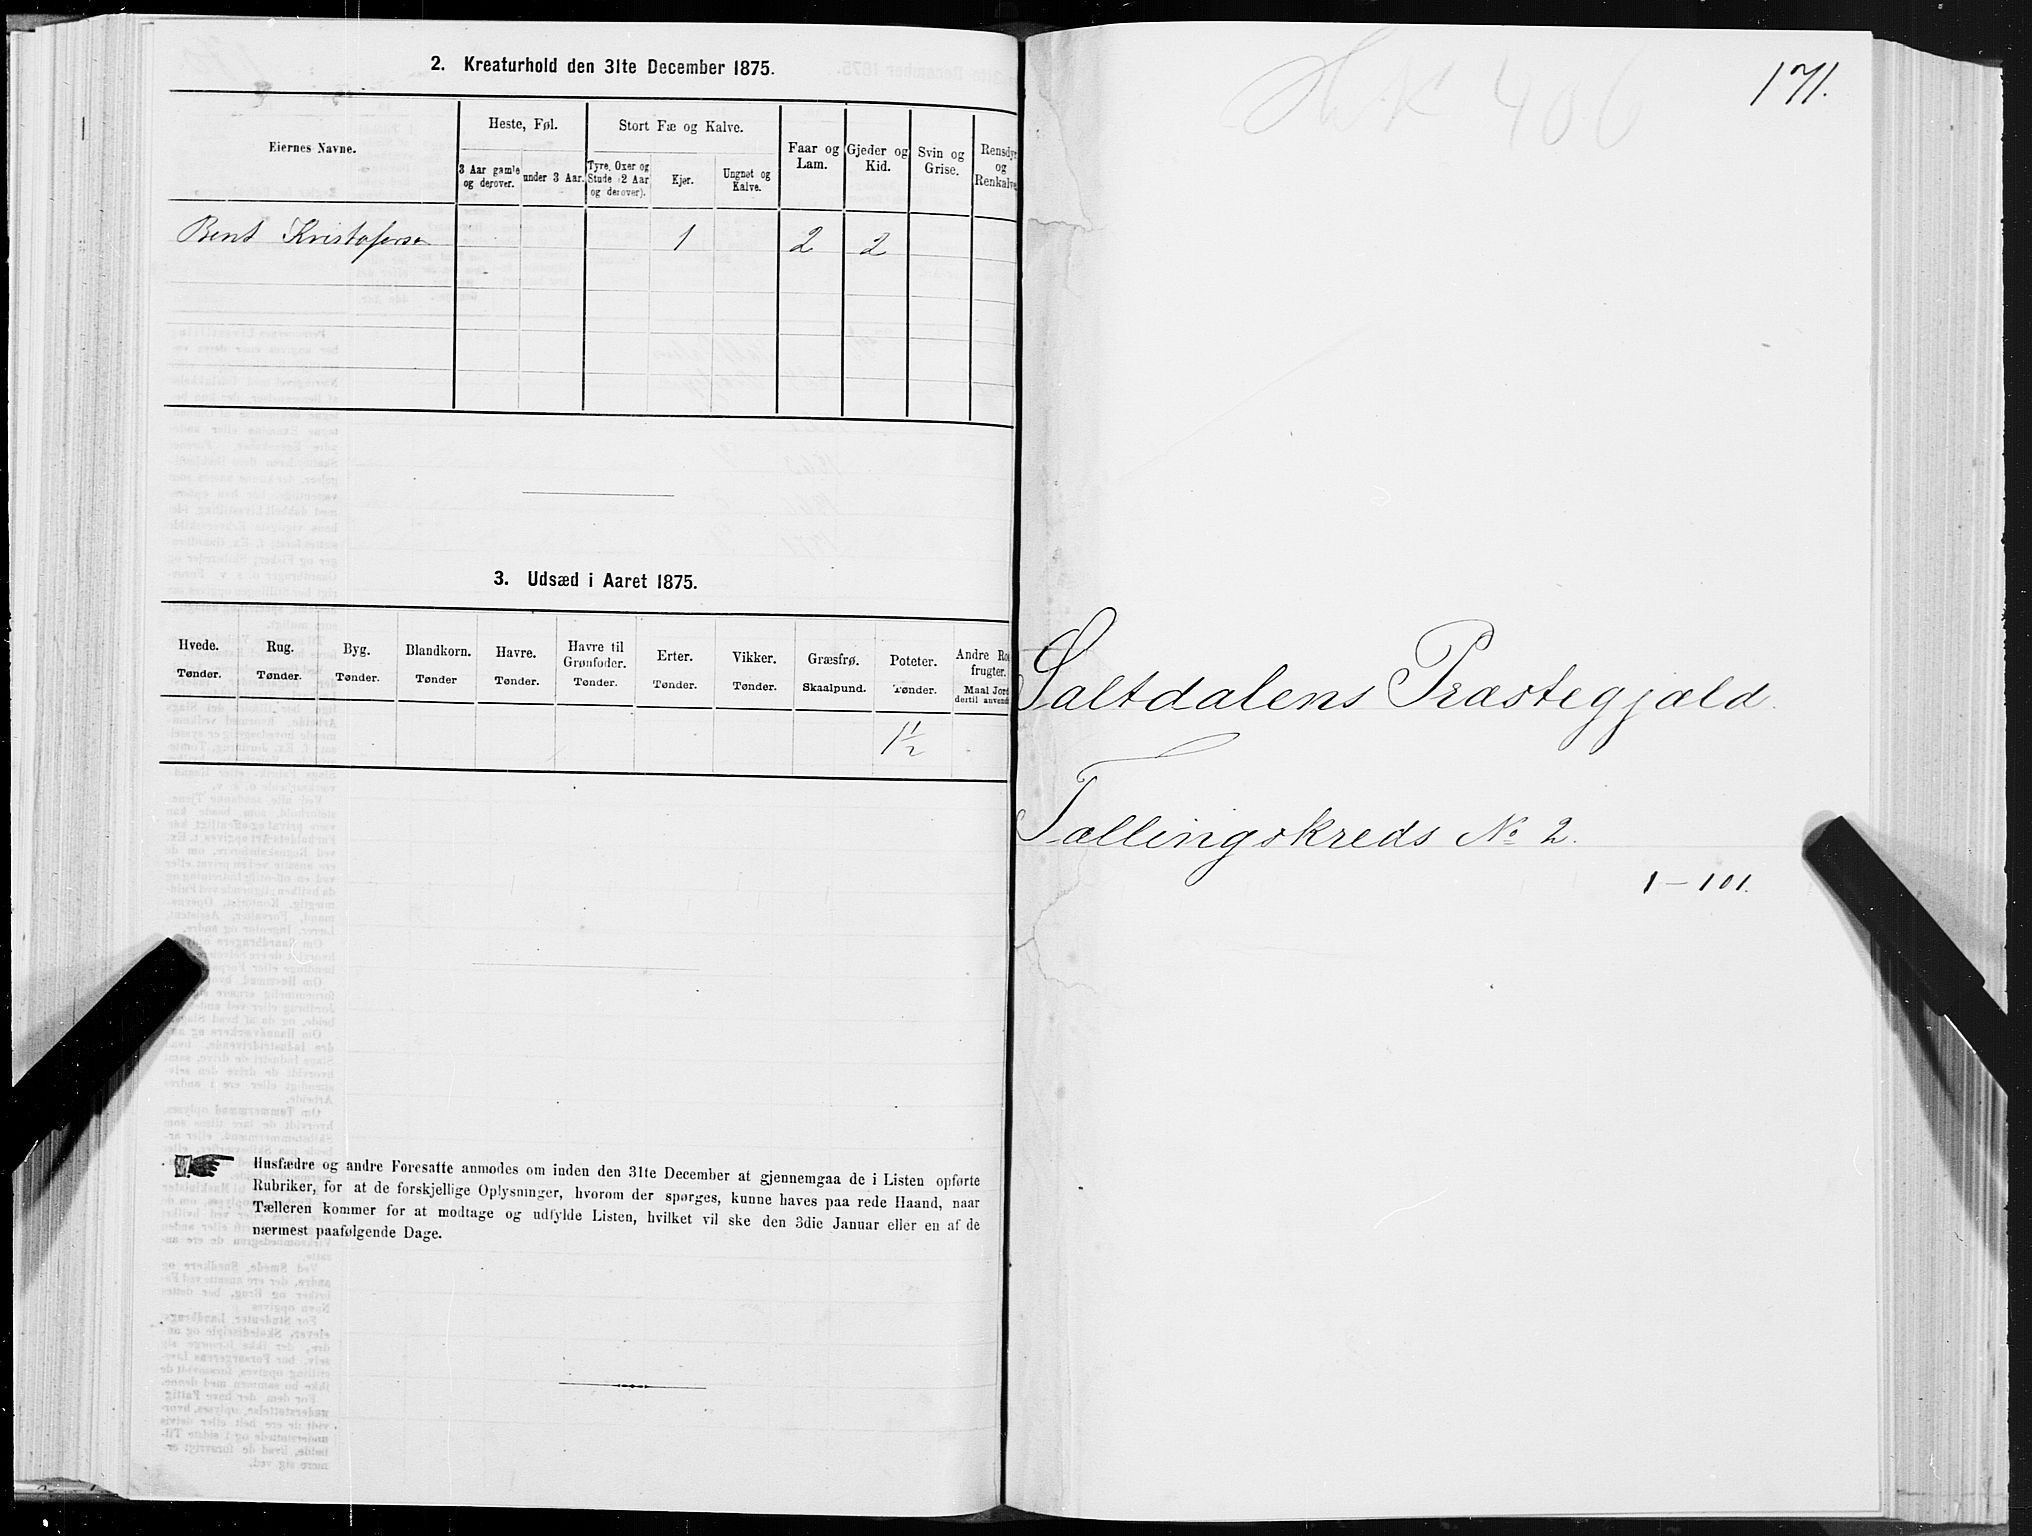 2. Kreaturhold den 31te December 1875.
Eiernes Navne.
Heste, Føl.
Stort Fæ og Kalve.
3 Aar gamle og derover.
under 3 Aar.
Tyre, Oxer og Stude (2 Aar og derover).
Kjør.
Ungnøt og Kalve.
Faar og Lam.
Gjeder og Kid.
Svin og Grise.
Rensdyr og Renkalve
Bent Kristofersen 1 2 2
3. Udsæd i Aaret 1875.
Hvede. Rug. Byg. Blandkorn. Havre. Havre til Grønfoder. Erter. Vikker. Græsfrø. Poteter. Andre Ro frugter.
Tønder. Tønder. Tønder. Tønder Tønder. Tønder. Tønder. Tønder. Skaalpund. Tønder. Maal Jord dertil anvendt
1 1/2
Husfædre og andre Foresatte anmodes om inden den 31te December at gjennemgaa de i Listen opførte
Rubriker, for at de forskjellige Oplysninger, hvorom der spørges, kunne haves paa rede Haand, naar
Tælleren kommer for at modtage og udfylde Listen, hvilket vil ske den 3die Januar eller en af de
nærmest paafølgende Dage.
171.
Saltdalens Præstegjæld.
Tællingskreds No 2.
1-101.